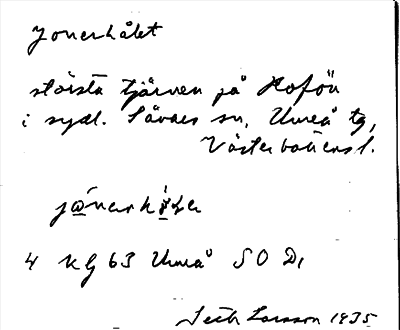 Jonerhålet
största tjärnen på Hofön
i sydl. Sävars sn, Umeå tg,
Västerbottens l.
4 KG 63 Umeå SO D1
Seth Larsson 1935